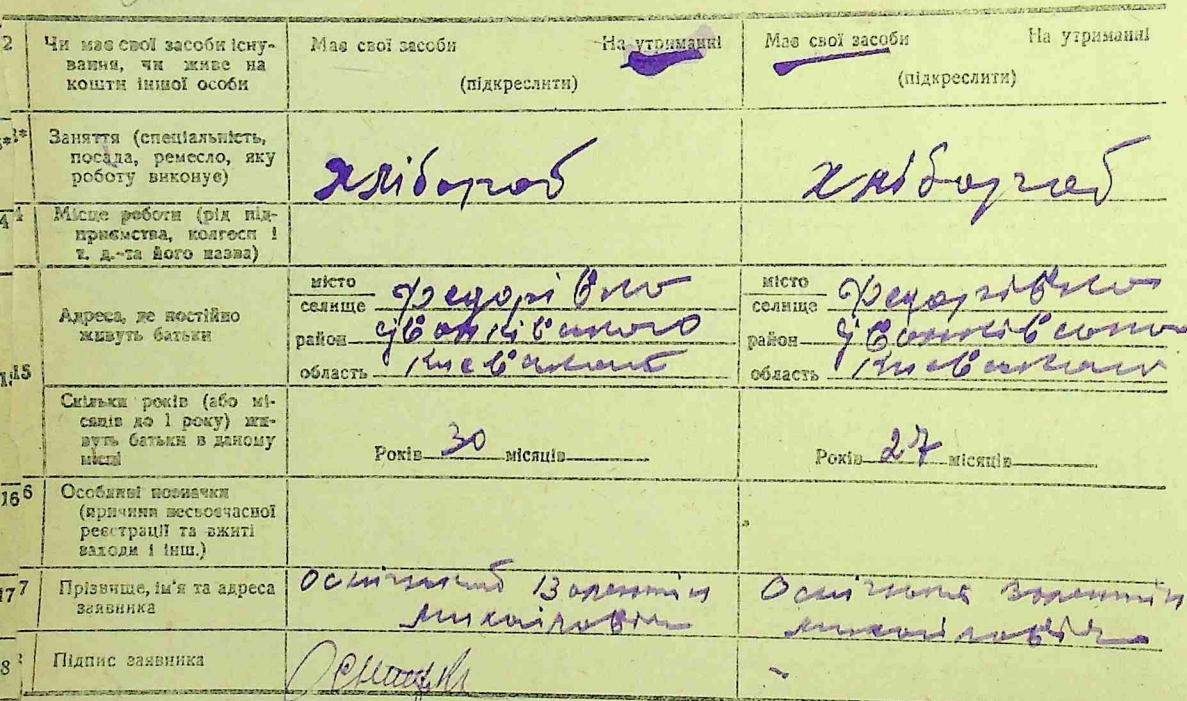 2 Чи має свої засоби існу-
вання, чи живе на
кошти іншої особи
Має свої засоби На утриманні
(підкреслити)
Має свої засоби На утриманні
(підкреслити)
Заняття (спеціальність,
посада, ремесло, яку
роботу виконує)
хлібороб
хлібороб
Місце роботи (рід під-
приємства, колгосп і
т. д. та його назва)
Адреса, де постійно
живуть батьки
місто
селище Федорівка
район Іванківського
область Київської
місто
селище Федорівка
район Іванківського
область
Скільки років (або мі-
сяців до 1 року) жи-
вуть батьки в даному
місці
Років 30 місяців
Років 27 місяців
16 6 Особливі позначки
(причини несвоєчасної
реєстрації та вжиті
заходи і інш.)
17 7 Прізвище, ім'я та адреса
заявника
Валентин
Михайлович
Валентин
Михайлович
8 Підпис заявника